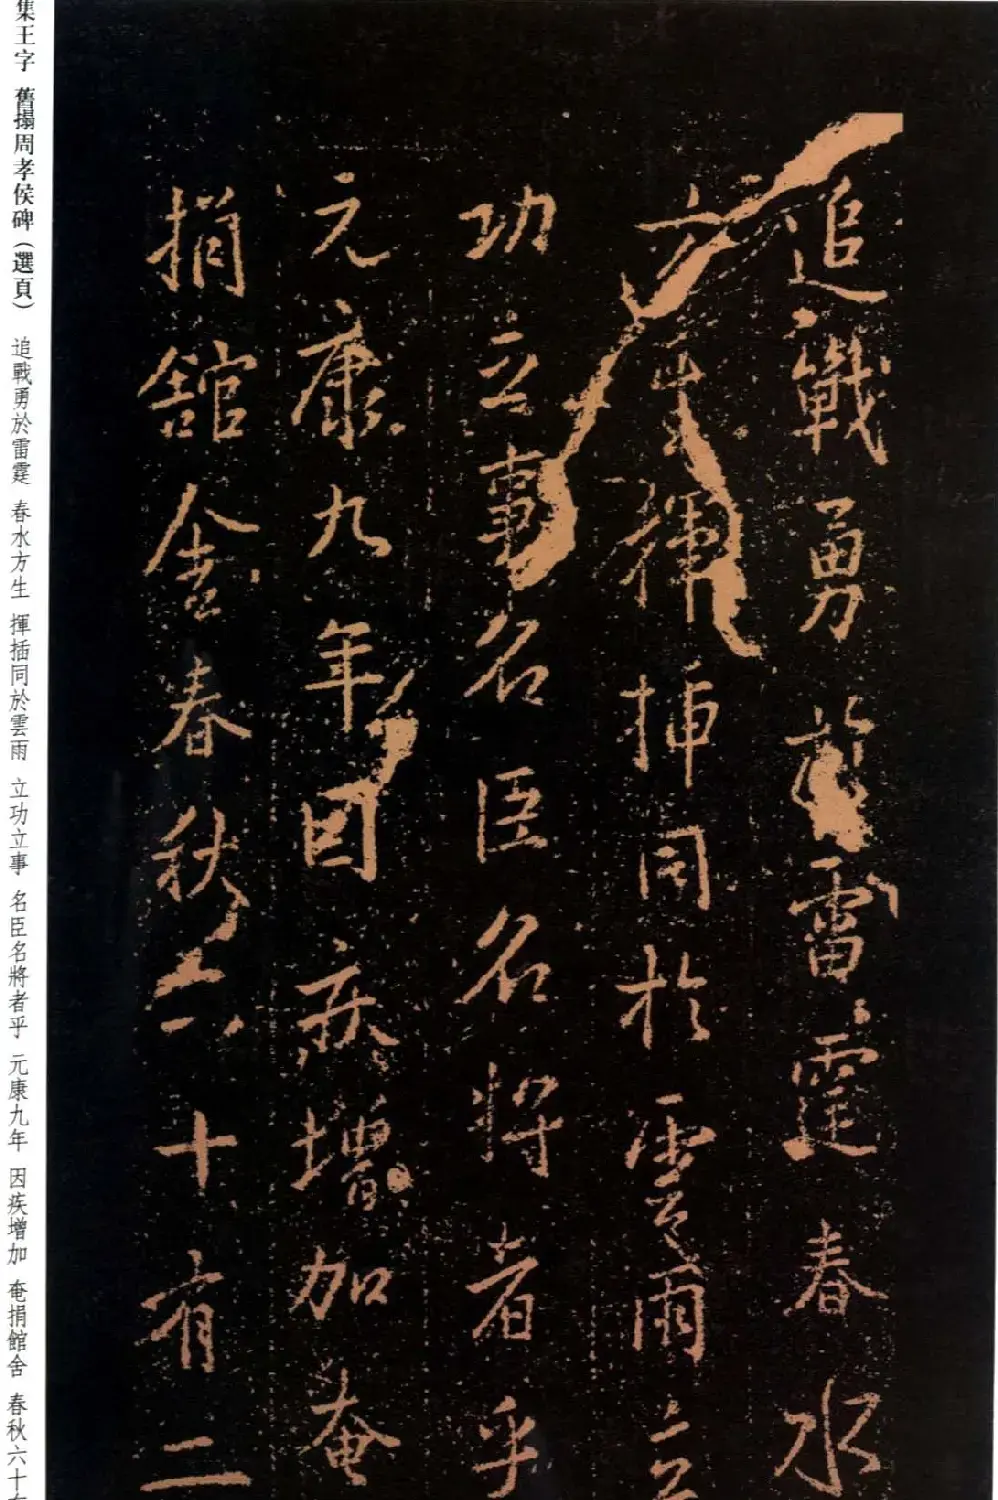 追戰勇於雷霆春水
方生揮插同於雲雨立
功立事名臣名將者乎
元康九年因疾增加奄
捐館舍春秋六十有二
集王字 舊搨周孝侯碑(選頁) 追戰勇於雷霆 春水方生 揮插同於雲雨 立功立事 名臣名將者乎 元康九年 因疾增加 奄捐館舍 春秋六十有